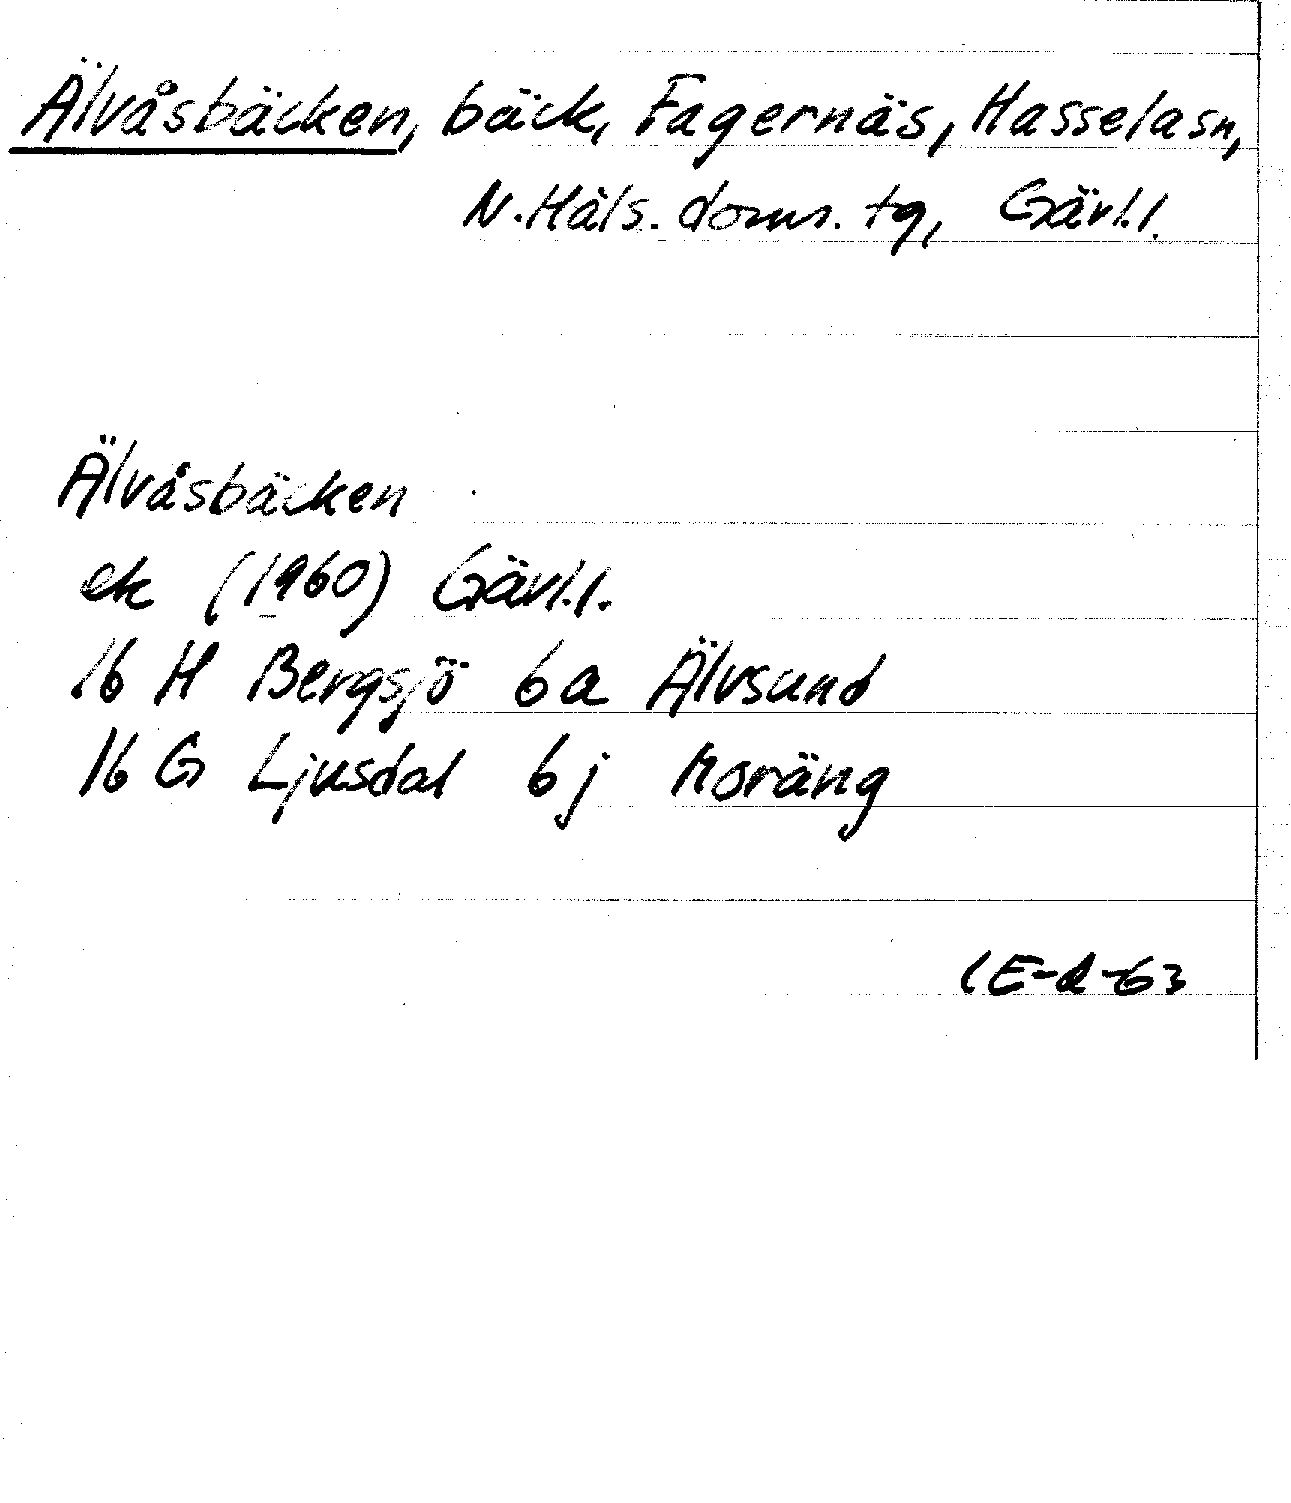 Älvåsbäcken, bäck, Fagernäs, Hasselasn,
N. Häls. doms. tg, Gävl.l.
Älvåsbäcken
ek (1960) Gävl.l.
16 H Bergsjö 6a Älvsund
16 G Ljusdal 6j Moräng